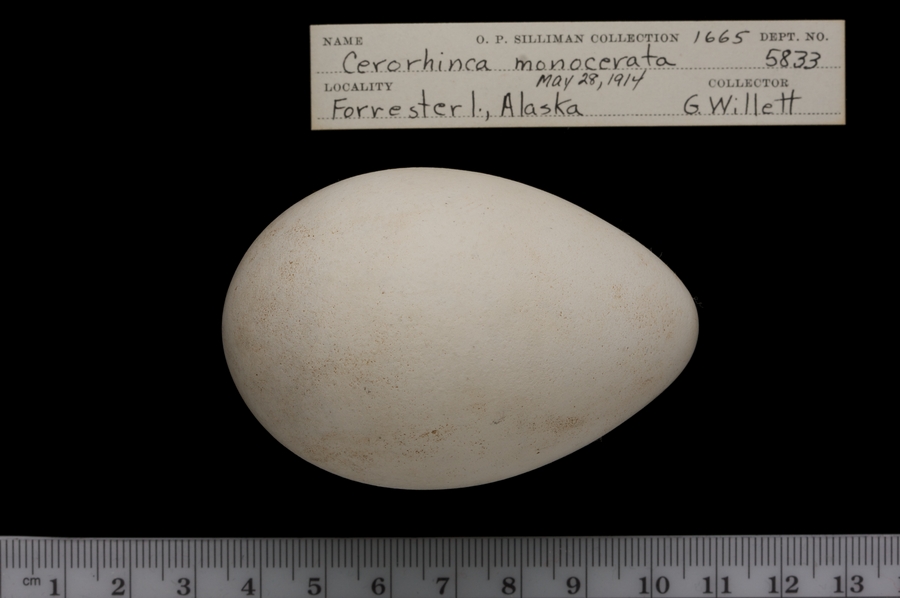 NAME O. P. SILLIMAN COLLECTION 1665 DEPT. NO.
Cerorhinca monocerata 5833
May 28, 1914
LOCALITY COLLECTOR
Forrester I., Alaska G. Willett
cm 1 2 3 4 5 6 7 8 9 10 11 12 13